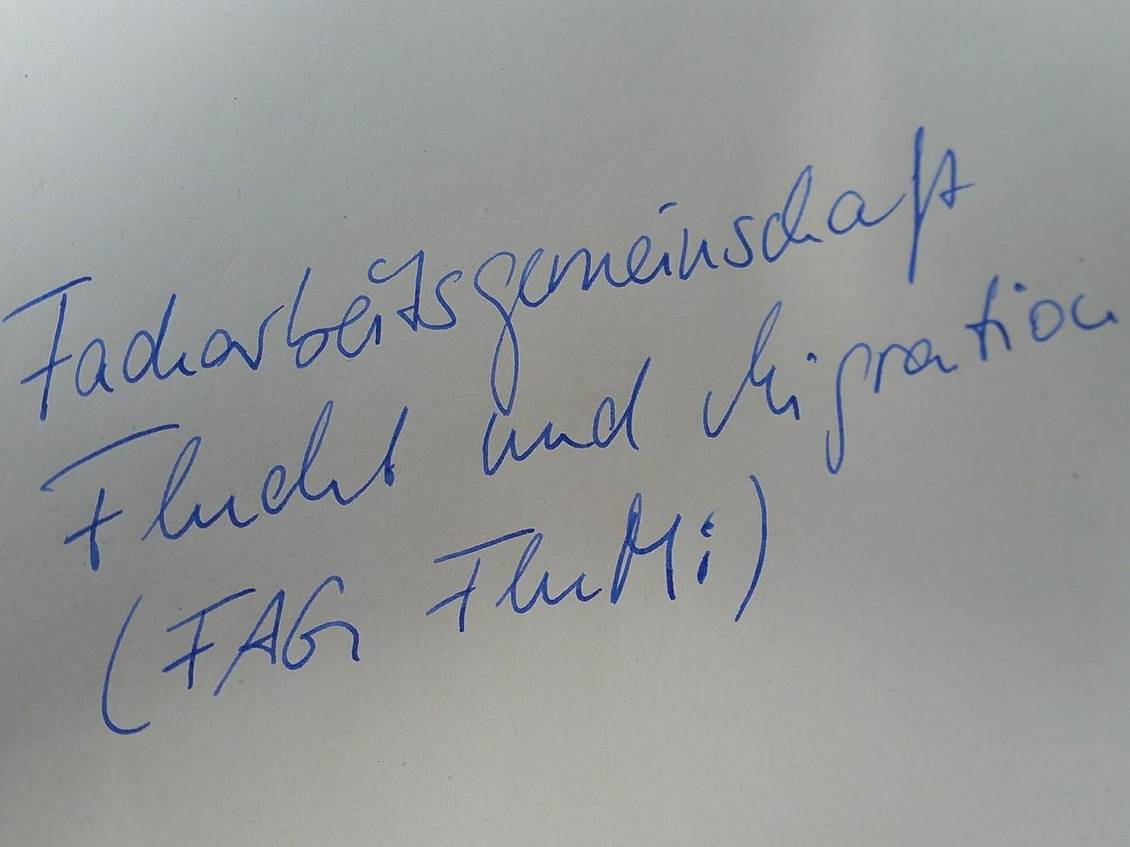 Facharbeitsgemeinschaft
Flucht und Migration
(FAG FluMi)